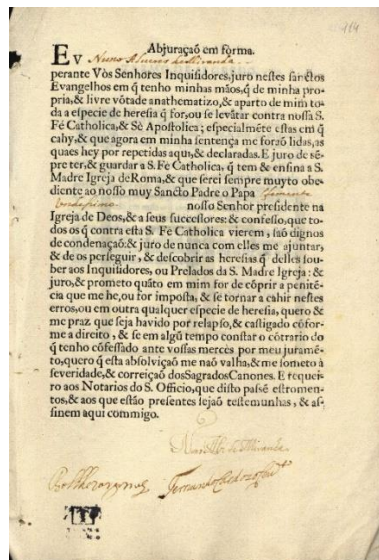 184
Abjuraçaõ em fórma.
EV Nuno Alvares de Miranda
perante Vòs Senhores Inquisidores, juro nestes sanctos
Evangelhos em q̃ tenho minhas mãos, q̃ de minha pro-
pria, & livre võtade anathematizo, & aparto de mim to-
da a especie de heresia q̃ for, ou se levãtar contra nossa S.
Fé Catholica, & Sè Apostolica; especialmẽte estas em q̃
cahy, & que agora em minha sentença me foraõ lidas, as
quaes hey por repetidas aqui, & declaradas. E juro de sẽ-
pre ter, & guardar a S. Fé Catholica, q̃ tem & ensina a S.
Madre Igreja de Roma, & que serei sempre muyto obe-
diente ao nosso muy Sancto Padre o Papa Clemente
Undecimo nosso Senhor presidente na
Igreja de Deos, & a seus successores: & confesso, que to-
dos os q̃ contra esta S. Fé Catholica vierem, saõ dignos
de condenaçaõ: & juro de nunca com elles me ajuntar,
& de os perseguir, & descobrir as heresias q̃ delles sou-
ber aos Inquisidores, ou Prelados da S. Madre Igreja: &
juro, & prometo quãto em mim for de cõprir a penitẽ-
cia que me he, ou for imposta, & se tornar a cahir nestes
erros, ou em outra qualquer especie de heresia, quero &
me praz que seja havido por relapso, & castigado cõfor-
me a direito, & se em algũ tempo constar o cõtrario do
q̃ tenho cõfessado ante vossas mercès por meu juramẽ-
to, quero q̃ esta absolviçaõ me naõ valha, & me someto à
severidade, & correiçaõ dos Sagrados Canones. E requei-
ro aos Notarios do S. Officio, que disto passẽ estromen-
tos, & aos que estão presentes sejaõ testemunhas, & as-
sinem aqui commigo.
de Miranda
Fernando